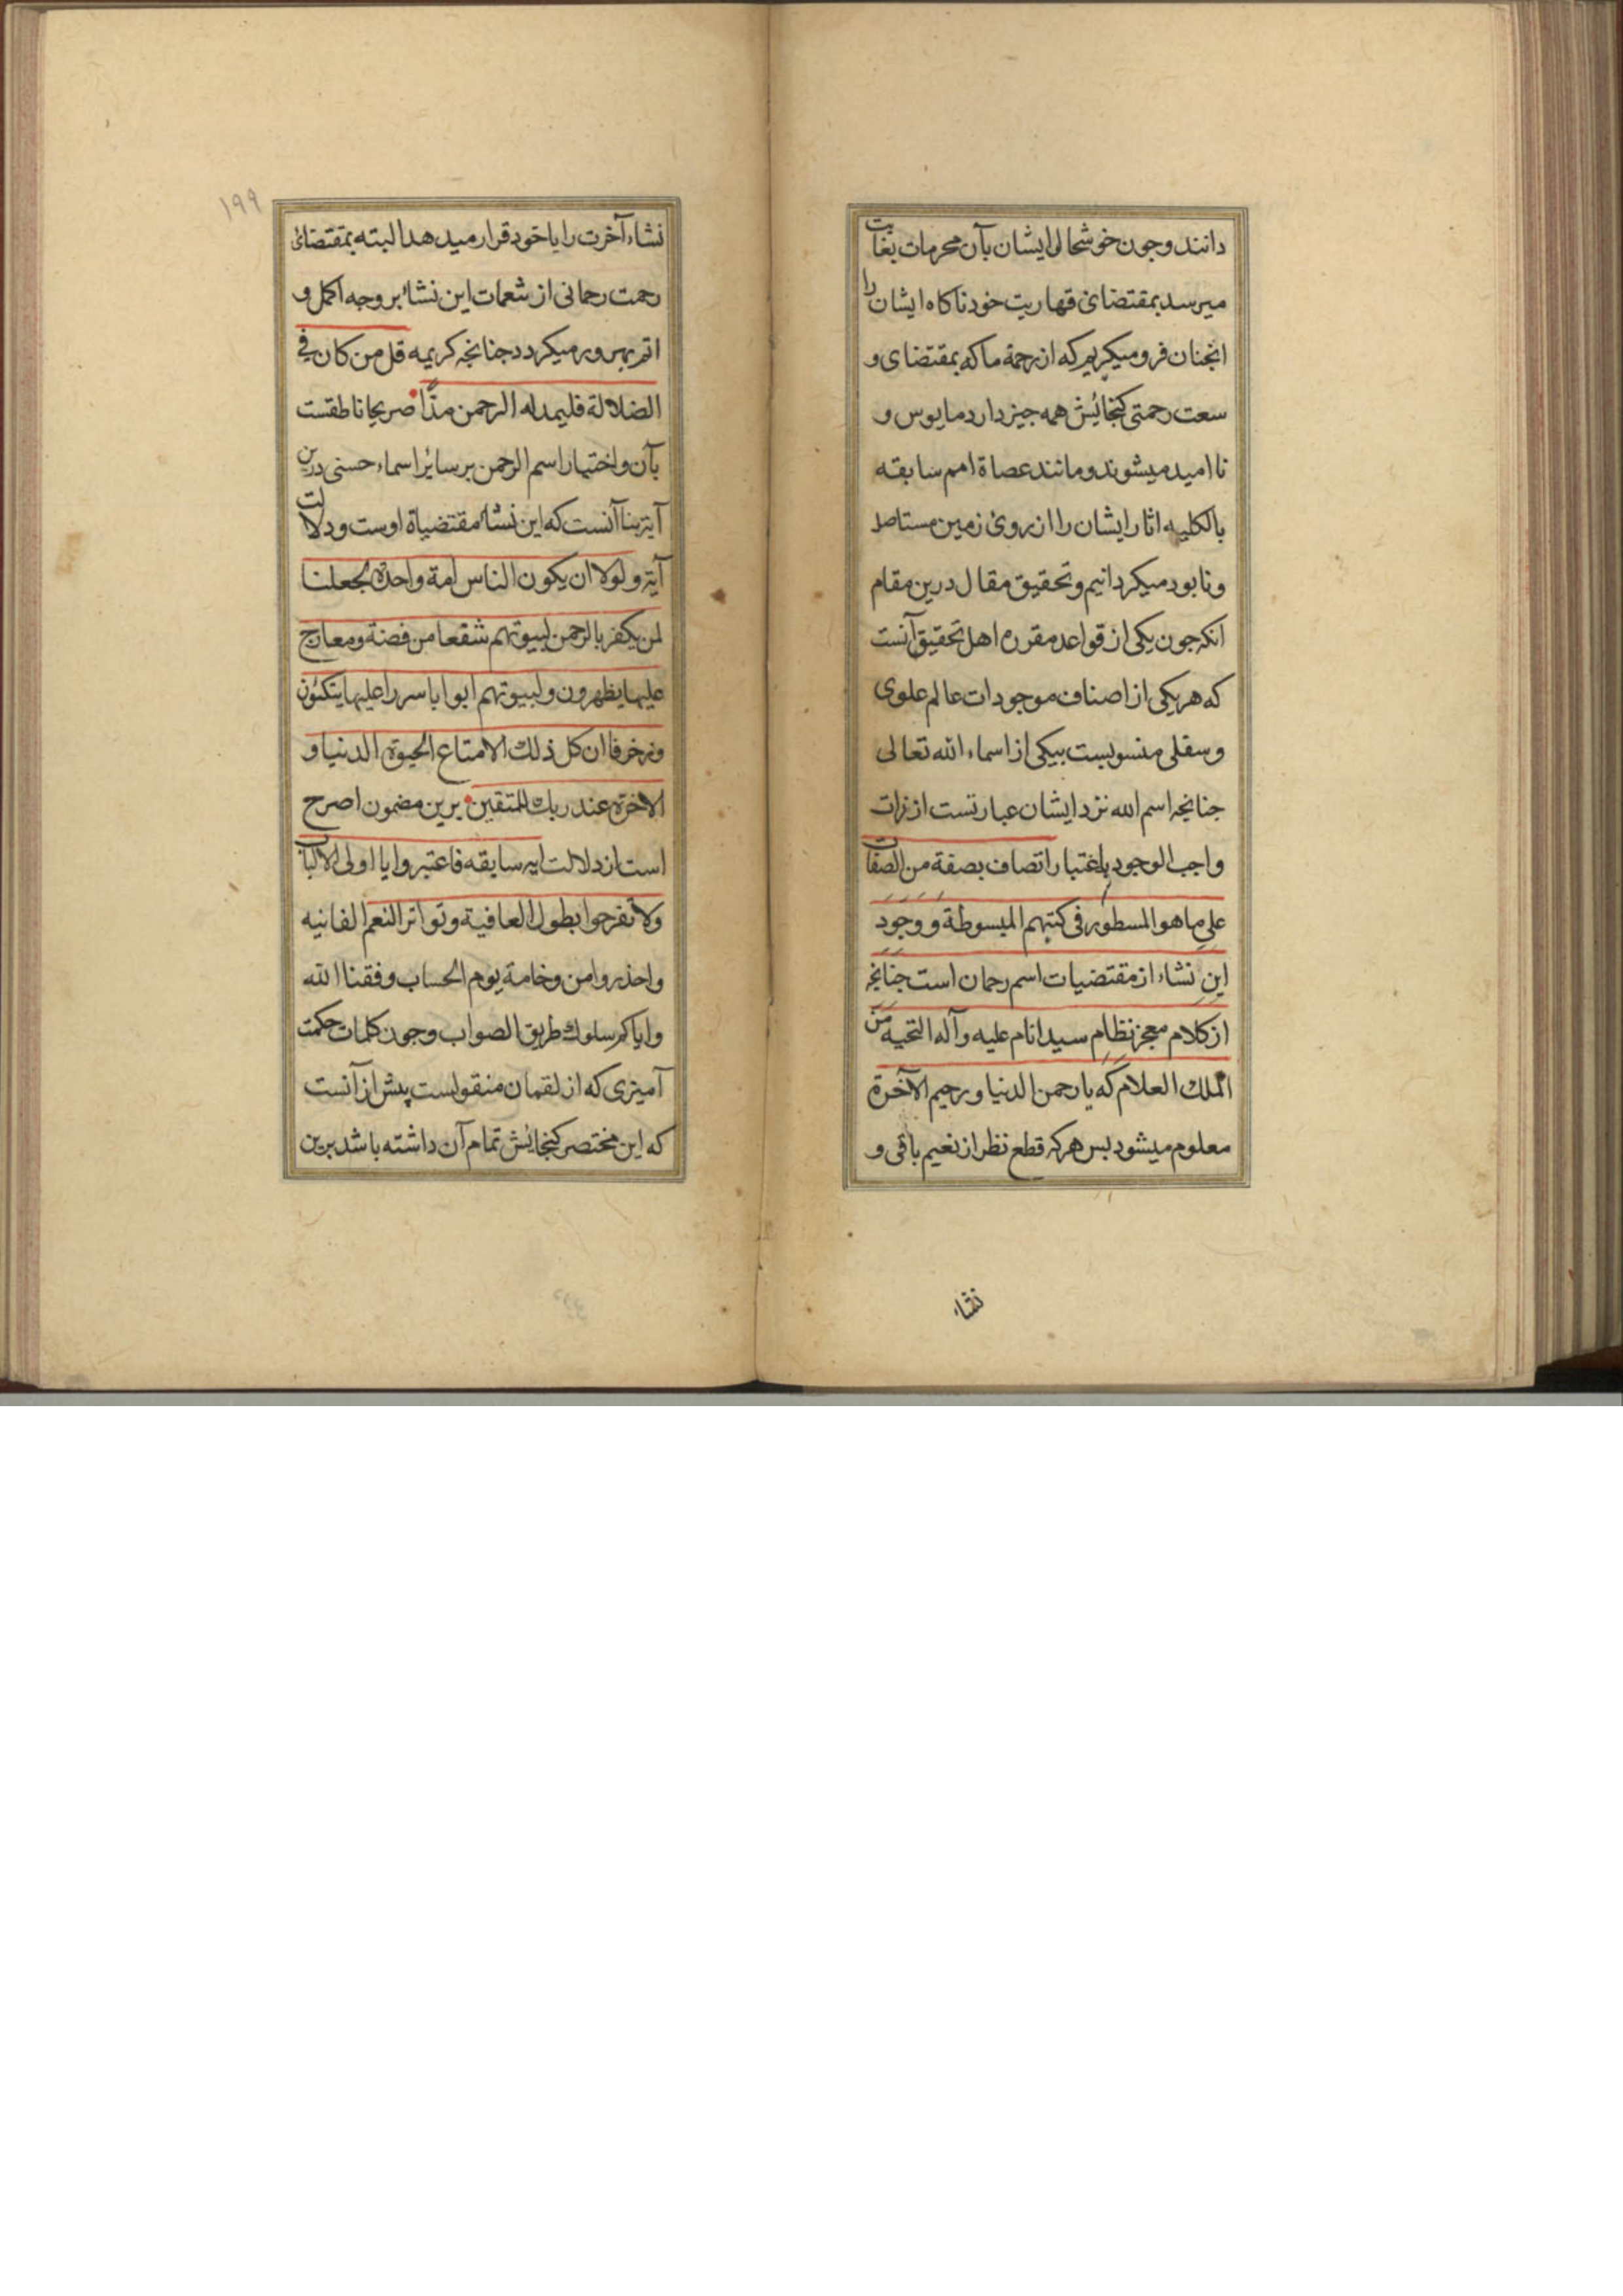 دانند و جون خوشحالی ایشان بآن محرمات بغایت
میرسد بمقتضای قهاریت خود ناکاه ایشان را
انجنان فرو میکریم که از رحمة ما که بمقتضای و
سعت رحمتی کنجائیش همه جیز دارد مایوس و
نا امید میشوند و مانند عصاة امم سابقه
بالکلیه اثار ایشان را از روی زمین مستاصل
و نابود میکردانیم و تحقیق مقال درین مقام
انکه جون یکی از قواعد مقرره اهل تحقیق آنست
که هر یکی از اصناف موجودات عالم علوی
و سفلی منسوبست بیکی از اسماء الله تعالی
جنانجه اسم الله نزد ایشان عبارتست از ذات
واجب الوجود باعتبار اتصاف بصفة من الصفات
علی ما هو المسطور فی کتبهم المبسوطة و وجود
این نشاء از مقتضیات اسم رحمان است جنانجه
از کلام معجز نظام سید انام علیه و آله التحیه من
الملك العلام که یا رحمن الدنیا و رحیم الآخرة
معلوم میشود بس هر که قطع نظر از نعیم باقی و
نشاء
١٩٩
نشاء آخرت را با خود قرار میدهد البته بمقتضائ
رحمت رحمانی از شعمات این نشاء بر وجه اکمل و
اتم بهره ور میکردد جنانجه کریمه قل من کان فی
الضلالة فلیمدد له الرحمن مدّا صریحا ناطقست
بآن و اختیار اسم الرحمن بر سائر اسماء حسنی درین
آیه بنا آنست که این نشاء مقتضیاة اوست و دلالت
آیه و لولا ان یکون الناس امة واحدة لجعلنا
لمن یکفر بالرحمن لبیوتهم سقفا من فضة و معارج
علیها یظهرون و لبیوتهم ابوابا سررا علیها یتکئون
و زخرفا ان کل ذلك الا متاع الحیوة الدنیا و
الاخرة عند ربك للمتقین برین مضمون اصرح
است از دلالت ایه سابقه فاعتبروا یا اولی الالباب
و لا تفرحوا بطول العافیة و تواتر النعم الفانیه
و احذروا من وخامة یوم الحساب وفقنا الله
و ایاکم سلوك طریق الصواب و جون کلمات حکمت
آمیزی که از لقمان منقولست پیش از آنست
که این مختصر کنجائش تمام آن داشته باشد برین